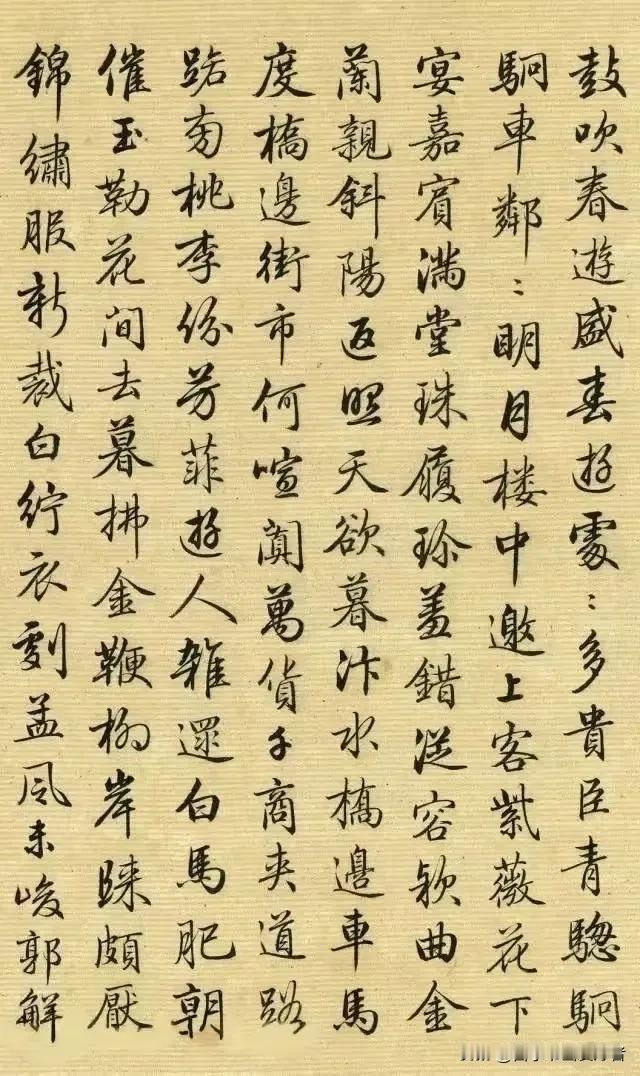 鼓吹春遊盛春遊處〻多貴臣青驄駉
駉車鄰〻明月楼中邀上客紫薇花下
宴嘉賓满堂珠履珍羞錯從容款曲金
蘭親斜陽返照天欲暮汴水橋邊車馬
度橋邊街市何喧闐萬貨千商夹道路
路旁桃李份芳菲遊人雜遝白馬肥朝
催玉勒花间去暮拂金鞭柳岸歸頗厭
錦繡服新裁白紵衣劇孟風未峻郭解